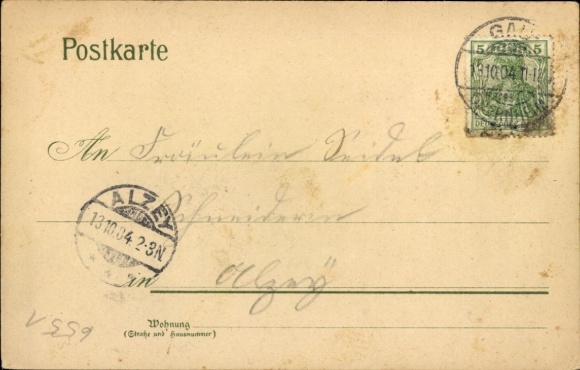 Postkarte
5 5
GAU
13.10.04. 11-12
An Fräulein Seidel
Schneiderin
ALZEY
13.10.04. 2-3N.
in Alzey
Wohnung
(Straße und Hausnummer)
6551